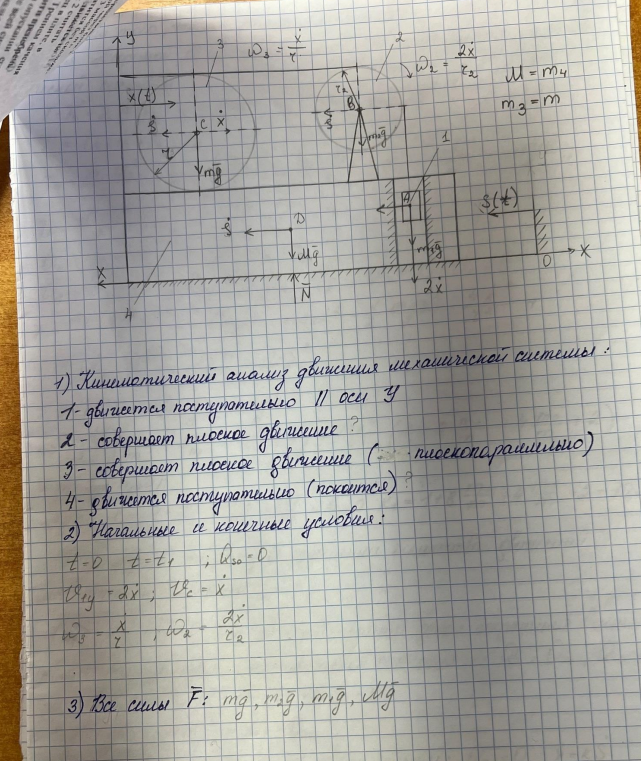 y
3
ω₃ = ẋ/r
2
ω₂ = 2ẋ/r₂
M = m₄
m₃ = m
x(t)
r₂
B
1
ṡ C ẋ
ṡ
m₂g̅
r
mg̅
A
s(t)
D
ṡ
m₁g̅
Mg̅
x
N̅
2ẋ
O
x
4
1) Кинематический анализ движения механической системы:
1 - движется поступательно || оси У
2 - совершает плоское движение ?
3 - совершает плоское движение ( плоскопараллельно)
4 - движется поступательно (покоится) ?
2) Начальные и конечные условия:
t=0 t=t₁ ; =0
υ₁y = 2ẋ ; υc = ẋ
ω₃ = ẋ/r , ω₂ = 2ẋ/r₂
3) Все силы F̅: mg̅, m₂g̅, m₁g̅, Mg̅